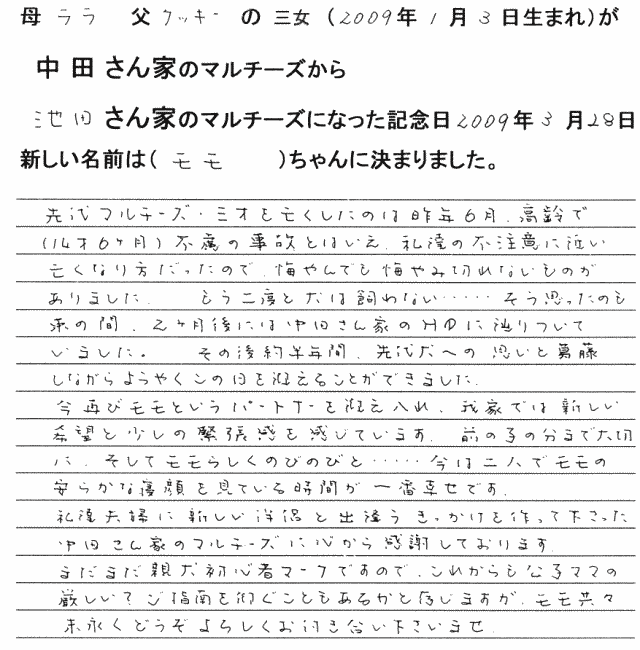 母 ララ 父 クッキー の 三女 (2009年 1月 3日生まれ)が
中田さん家のマルチーズから
池田 さん家のマルチーズになった記念日2009年3月28日
新しい名前は( モモ )ちゃんに決まりました。
先代マルチーズ・ミオを亡くしたのは昨年6月、高齢で
(14才6ヶ月)不慮の事故とはいえ、私達の不注意に近い
亡くなり方だったので、悔やんでも悔やみ切れないものが
ありました。 もう二度と犬は飼わない……そう思ったのも
束の間、2ヶ月後には中田さん家のHPに辿りついて
いました。 その後約半年間、先代犬への思いと葛藤
しながらようやくこの日を迎えることができました。
今再びモモというパートナーを迎え入れ、我家では新しい
希望と少しの緊張感を感じています。前の子の分まで大切
に、そしてモモらしくのびのびと……今は二人でモモの
安らかな寝顔を見ている時間が一番幸せです。
私達夫婦に新しい伴侶と出逢うきっかけを作って下さった
中田さん家のマルチーズに心から感謝しております。
まだまだ親犬初心者マークですので、これからも公子ママの
厳しい?ご指南を仰ぐこともあるかと存じますが、モモ共々
末永くどうぞよろしくお付き合い下さいませ。